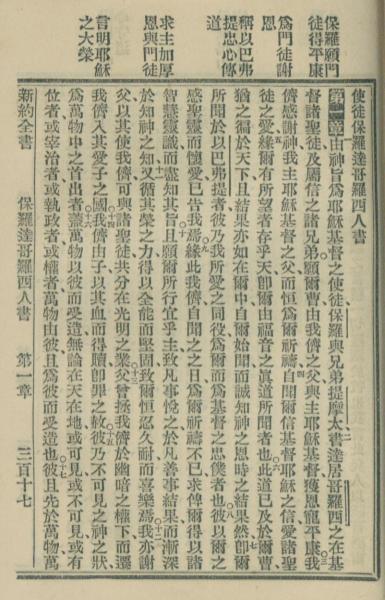 保羅願門
徒得平康
爲門徒謝
恩
稱以巴弗
提忠心傳
道
求主加厚
恩與門徒
言明耶穌
之大榮
使徒保羅達哥羅西人書
第一章由神旨爲耶穌基督之使徒保羅與兄弟提摩太書達居哥羅西之在基
督諸聖徒及屬信之諸兄弟願爾曹由我儕之父與主耶穌基督獲恩寵平康我
儕感謝神我主耶穌基督之父而恆爲爾祈禱自聞爾信基督耶穌之信愛諸聖
徒之愛緣爾有所望者存乎天卽爾由福音之眞道所聞者也此道已及於爾曹
猶之徧於天下且結果亦如在爾中自爾始聞而誠知神之恩時之結果然卽爾
所聞於以巴弗提者彼乃我所愛之同役爲爾而爲基督之忠僕者也彼以爾之
感聖靈而懷愛已告我焉緣此我儕自聞之之日爲爾祈禱不已求俾爾得以諸
智慧靈識而盡知其旨且願爾所行宜乎主致凡事悅之於凡善事結果而漸深
於知神之知又循其榮之力得以全能而堅固致爾恆忍久耐而喜樂焉我亦謝
父以其使我儕可與諸聖徒共分在光明之業父曾拯我儕於幽暗之權下而遷
我儕入其愛子之國我儕由子以其血而得贖卽罪之赦彼乃不可見之神之狀
爲萬物中之首出者蓋萬物以彼而受造無論在天在地或可見或不可見或有
位者或宰治者或執政者或權者萬物由彼且爲彼而受造也彼且先於萬物萬
新約全書 保羅達哥羅西人書 第一章 三百十七